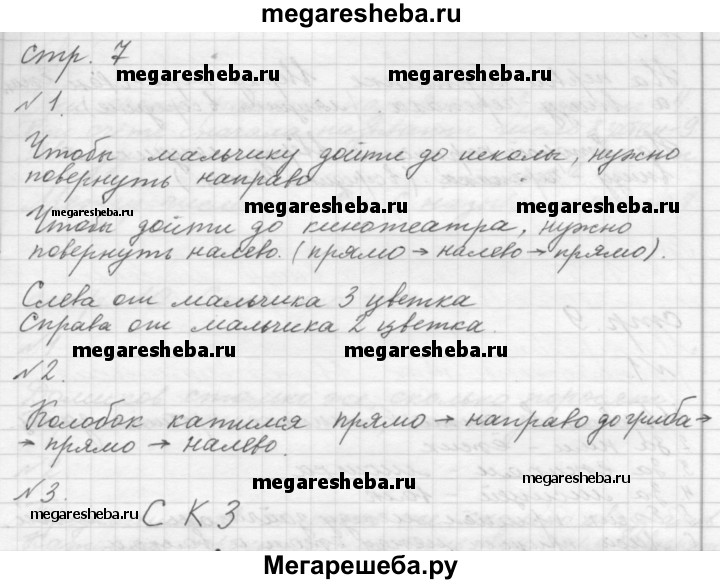 megaresheba.ru
стр. 7
megaresheba.ru megaresheba.ru
№ 1.
Чтобы мальчику дойти до школы, нужно
повернуть направо
megaresheba.ru megaresheba.ru
Чтобы дойти до кинотеатра, нужно
повернуть налево. (прямо → налево → прямо).
Слева от мальчика 3 цветка
Справа от мальчика 2 цветка.
megaresheba.ru megaresheba.ru
№ 2.
Колобок катился прямо → направо до гриба →
→ прямо → налево.
megaresheba.ru
№ 3.
megaresheba.ru С К З megaresheba.ru
Мегарешеба.ру